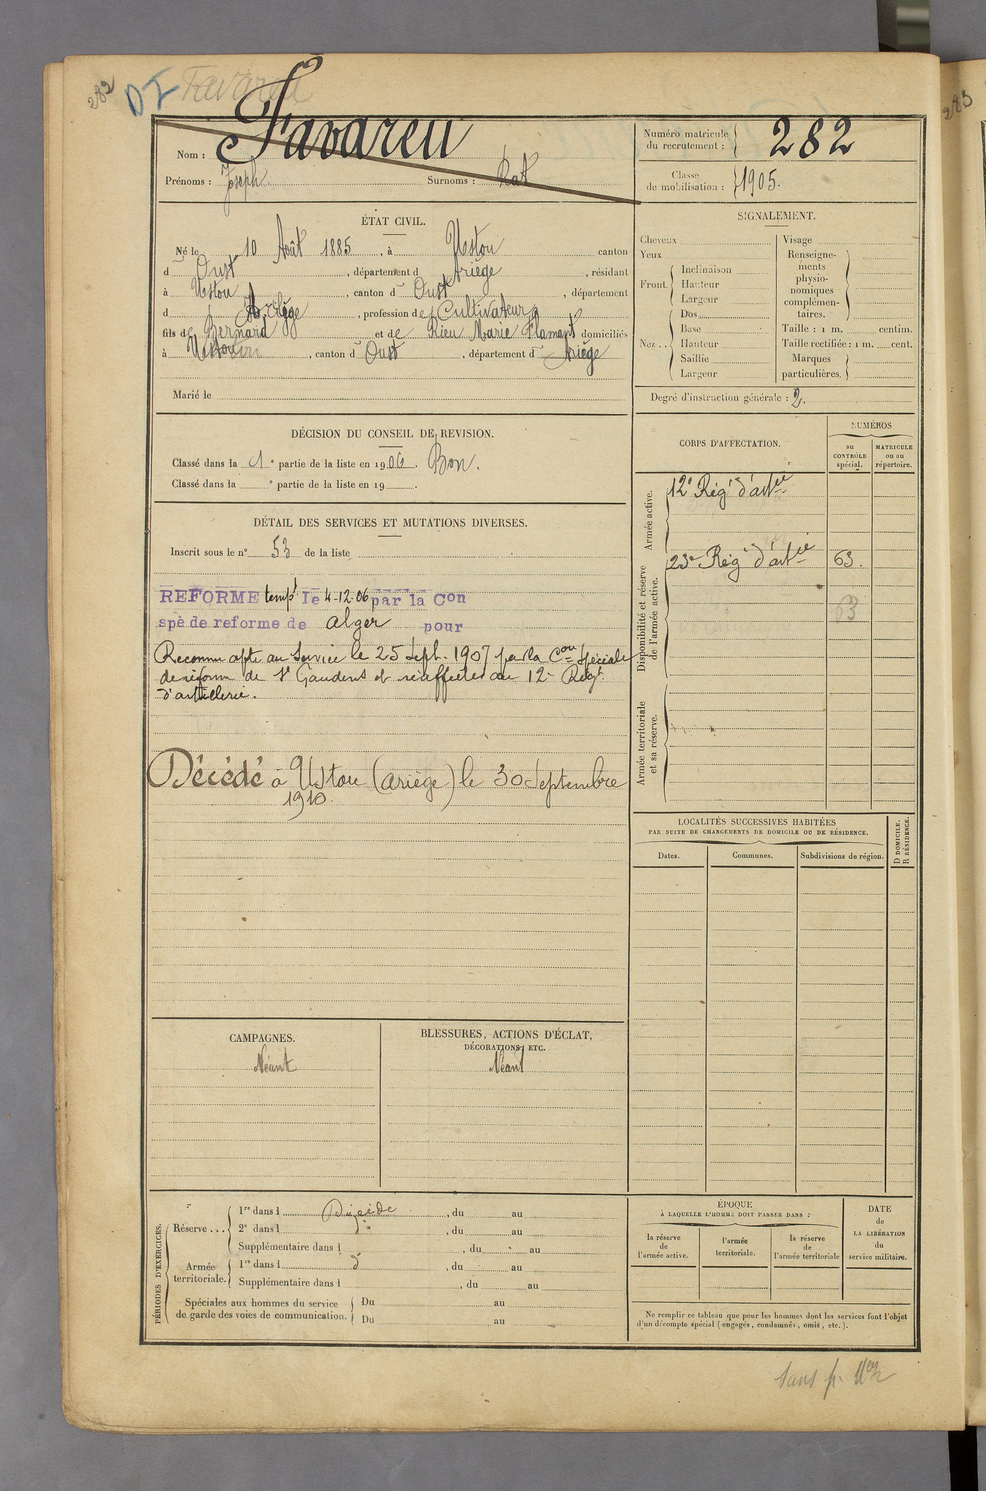 282
DI Favareu
Nom : Favareu
Prénoms : Joseph Surnoms : Rat
Numéro matricule du recrutement : 282
Classe de mobilisation : 1905.
ÉTAT CIVIL.
Né le 10 Août 1885, à Ustou canton
d Oust, département d Ariège, résidant
à Ustou, canton d Oust, département
d Ariège, profession de Cultivateur
fils de Bernard et de Rieu Marie Flamant domiciliés
à Ustou, canton d Oust, département d Ariège
Marié le
SIGNALEMENT.
Cheveux
Yeux
Front. Inclinaison
Hauteur
Largeur
Nez .. Dos
Base
Hauteur
Saillie
Largeur
Visage
Renseigne-
ments
physio-
nomiques
complémen-
taires.
Taille : 1 m. centim.
Taille rectifiée : 1 m. cent.
Marques
particulières.
Degré d'instruction générale : 2.
DÉCISION DU CONSEIL DE REVISION.
Classé dans la 1 e partie de la liste en 1906. Bon.
Classé dans la e partie de la liste en 19 .
DÉTAIL DES SERVICES ET MUTATIONS DIVERSES.
Inscrit sous le n° 53 de la liste
REFORME tempre le 4-12-06 par la Con
spè de reforme de alger pour
Reconnu apte au Service le 25 Sept. 1907 par la Con Spéciale
de réforme de St Gaudens et réaffecté au 12e Régt
d'artillerie.
Décédé à Ustou (Ariège) le 30 Septembre
1910.
CORPS D'AFFECTATION.
NUMÉROS
au
CONTRÔLE
spécial.
MATRICULE
ou au
répertoire.
Armée active.
12e Régt d'artie
Disponibilité et réserve
de l'armée active.
23e Régt d'artie 63.
63
Armée territoriale
et sa réserve.
LOCALITÉS SUCCESSIVES HABITÉES
PAR SUITE DE CHANGEMENTS DE DOMICILE OU DE RÉSIDENCE.
Dates. Communes. Subdivisions de région.
D DOMICILE.
R RÉSIDENCE.
CAMPAGNES.
Néant
BLESSURES, ACTIONS D'ÉCLAT,
DÉCORATIONS, ETC.
Néant
PÉRIODES D'EXERCICES.
Réserve ... 1re dans l Décédé, du au
2e dans l , du au
Supplémentaire dans l , du au
Armée territoriale. 1re dans l , du au
Supplémentaire dans l , du au
Spéciales aux hommes du service
de garde des voies de communication. Du au
Du au
ÉPOQUE
À LAQUELLE L'HOMME DOIT PASSER DANS :
la réserve
de
l'armée active.
l'armée
territoriale.
la réserve
de
l'armée territoriale
DATE
de
LA LIBÉRATION
du
service militaire.
Ne remplir ce tableau que pour les hommes dont les services font l'objet
d'un décompte spécial (engagés, condamnés, omis, etc.).
283